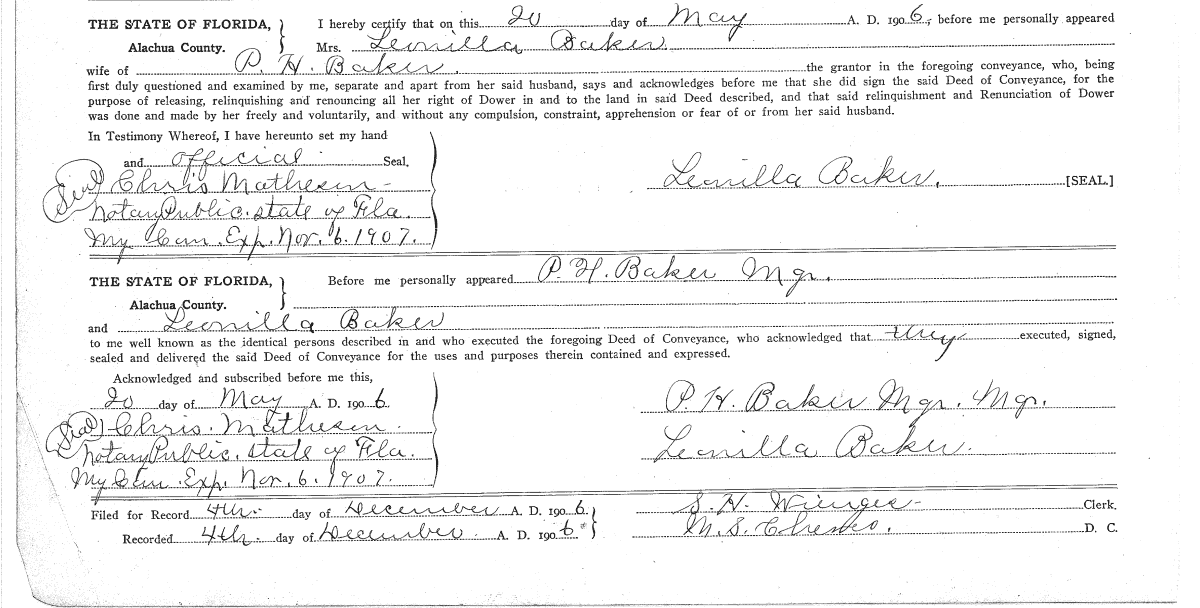 THE STATE OF FLORIDA, I hereby certify that on this 20 day of May A. D. 1906, before me personally appeared
Alachua County. Mrs. Leonilla Baker.
wife of P. H. Baker. the grantor in the foregoing conveyance, who, being
first duly questioned and examined by me, separate and apart from her said husband, says and acknowledges before me that she did sign the said Deed of Conveyance, for the
purpose of releasing, relinquishing and renouncing all her right of Dower in and to the land in said Deed described, and that said relinquishment and Renunciation of Dower
was done and made by her freely and voluntarily, and without any compulsion, constraint, apprehension or fear of or from her said husband.
In Testimony Whereof, I have hereunto set my hand
and official Seal.
(Seal) Chris Matheson
Notary Public. state of Fla.
My Com. Exp. Nov. 6. 1907.
Leonilla Baker. [SEAL.]
THE STATE OF FLORIDA, Before me personally appeared P. H. Baker Mgr.
Alachua County.
and Leonilla Baker
to me well known as the identical persons described in and who executed the foregoing Deed of Conveyance, who acknowledged that they executed, signed,
sealed and delivered the said Deed of Conveyance for the uses and purposes therein contained and expressed.
Acknowledged and subscribed before me this,
20 day of May A. D. 1906
(Seal) Chris. Matheson.
Notary Public. state of Fla.
My Com. Exp. Nov. 6. 1907.
P. H. Baker Mgr. Mgr.
Leonilla Baker.
Filed for Record 4th. day of December A. D. 1906. S. H. Wienges Clerk.
Recorded 4th. day of December. A. D. 1906 M. S. D. C.